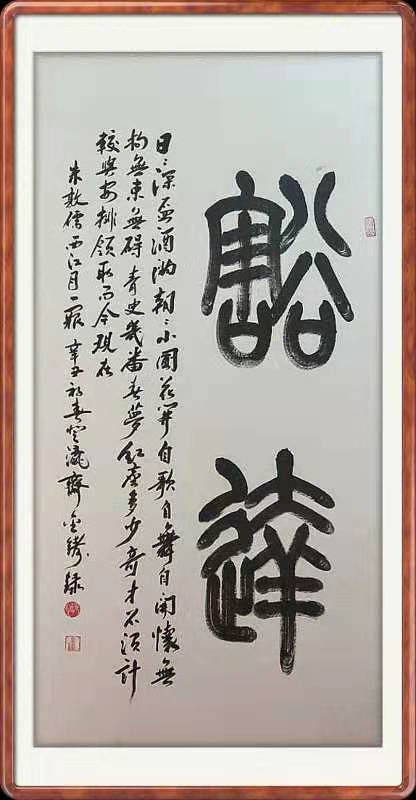 豁達
日〻深盃酒滿朝〻小圃花開自歌自舞自開懷無
拘無束無碍青史幾番春夢紅塵多少奇才不須計
較與安排領取而今現在
朱敦儒西江月一闋辛丑初春齋金錄